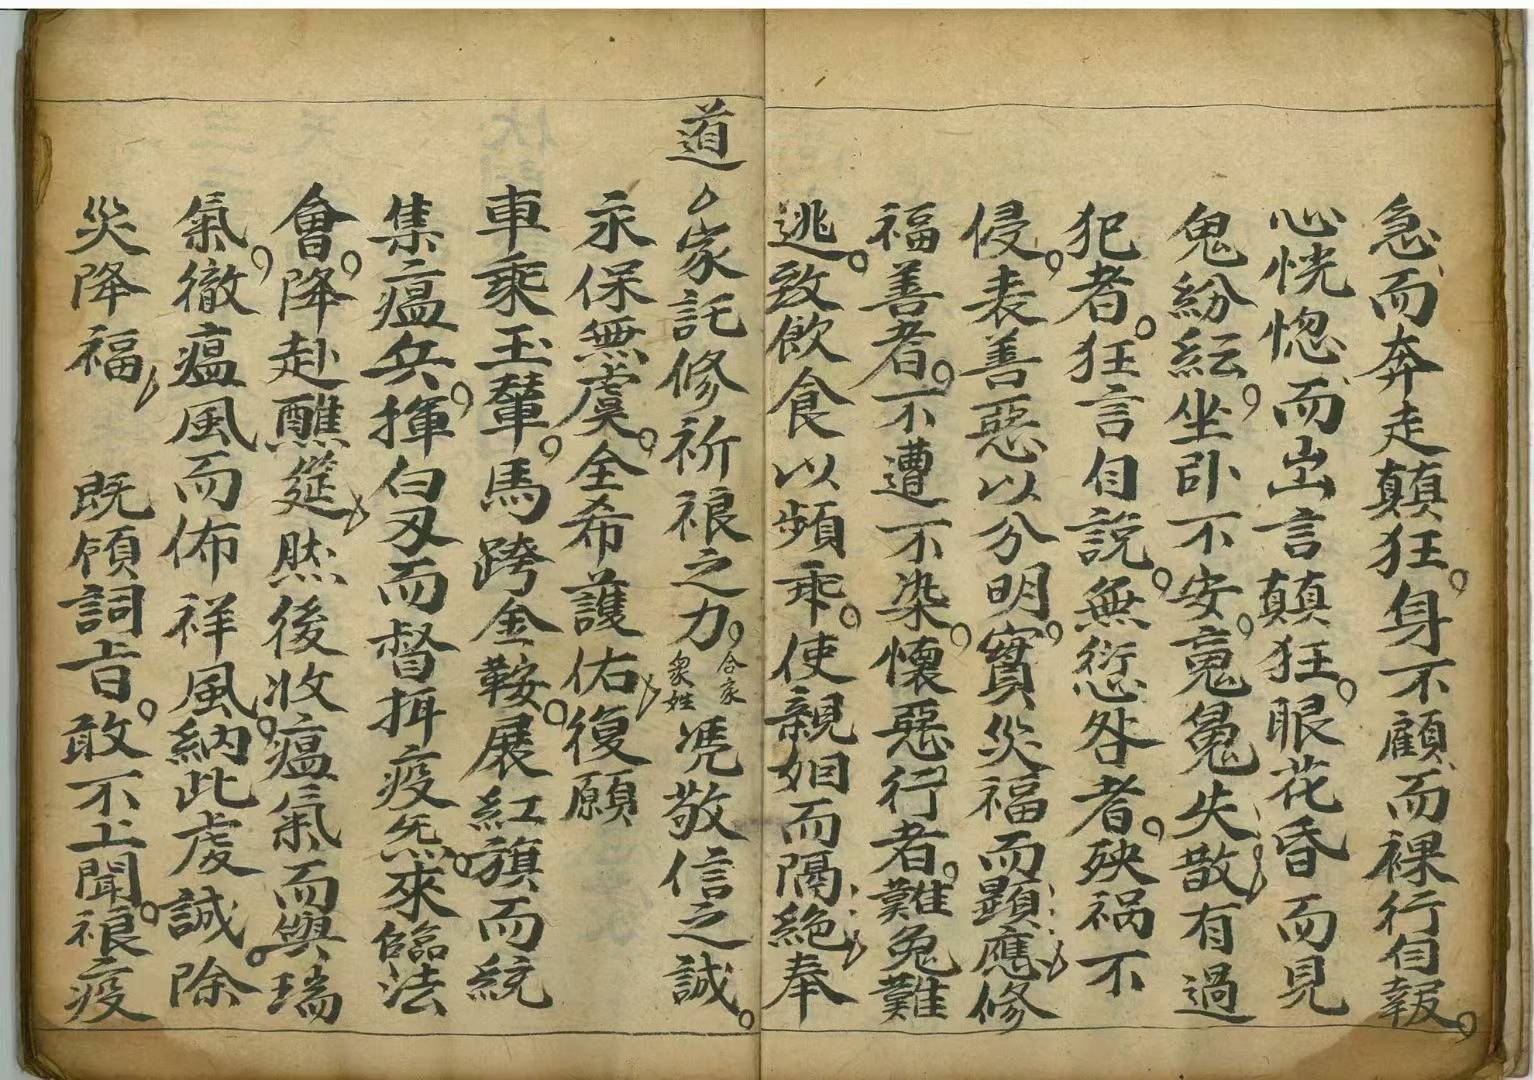 急而奔走顛狂。身不顧而裸行自報。
心恍惚而出言顛狂。眼花昏而見
鬼紛紜。坐卧不安。䰟魄失散有過
犯者。狂言自說。無愆咎者。殃祸不
侵。表善惡以分明。實災福而顕應修
福善者。不遭不染。懷惡行者。難免難
逃。致飲食以頻乖。使親姻而隔絶奉
道〻家託修祈禳之力。合家眾姓凴敬信之誠。
永保無虞。全希護佑復願
車乘玉輦。馬跨金鞍。展紅旗而統
集瘟兵。揮白刃而督押疫炁。來臨法
會。降赴醮筵然後收瘟氣而興瑞
氣。徹瘟風而佈祥風。納此虔誠。除
災降福 既領詞旨。敢不上聞。禳疫